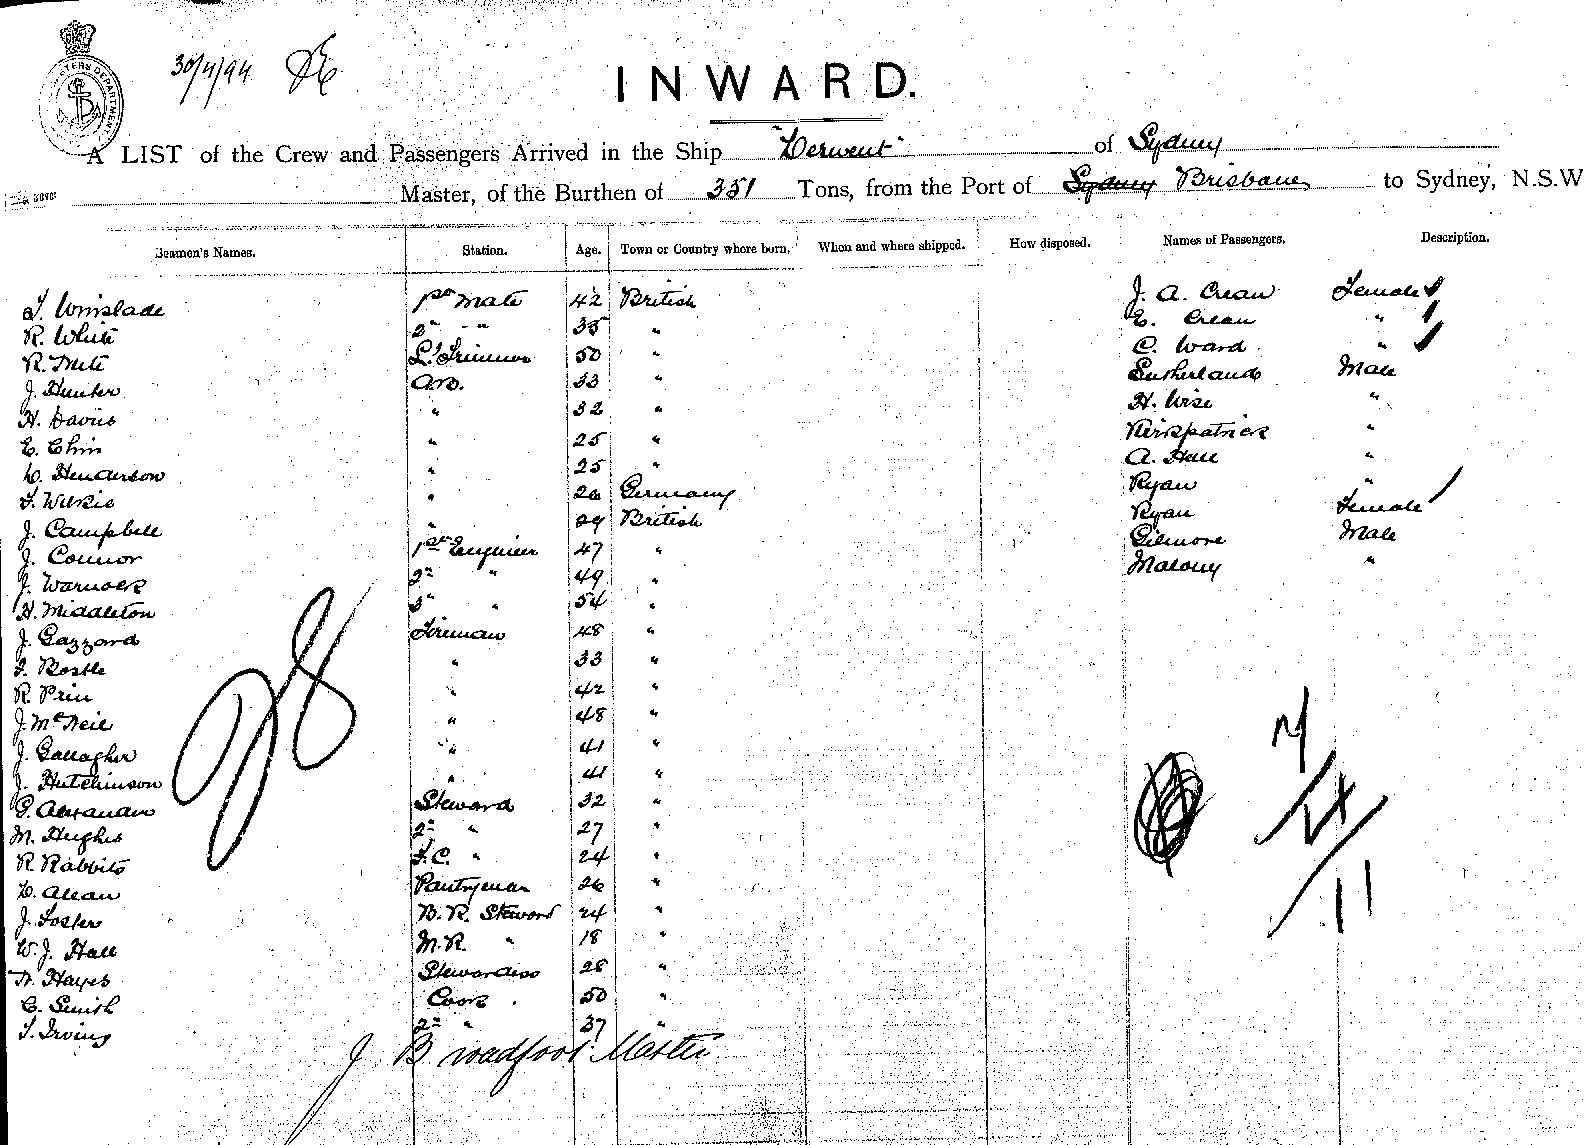 30/4/94
INWARD.
A LIST of the Crew and Passengers Arrived in the Ship "Derwent" of Sydney
Master, of the Burthen of 351 Tons, from the Port of Sydney Brisbane to Sydney, N.S.W
Seamen's Names. Station. Age. Town or Country where born. When and where shipped. How disposed. Names of Passengers. Description.
T. Winslade 1st Mate 42 British J. A. Crean Female
R. White 2nd " 35 " E. Crean "
R. Mete Lp Trimmer 50 " C. Ward "
J. Hunter A.B. 33 " Sutherland Male
H. Davies " 32 " H. Wise "
E. Chin " 25 " Kirkpatrick "
D. Henderson " 25 " A. Hall "
T. Wilkie " 26 Germany Ryan "
J. Campbell " 29 British Ryan Female
J. Connor 1st Engineer 47 " Gilmore Male
J. Warnock 2nd " 49 " Malony "
H. Middleton 3rd " 54 "
J. Gazzard Fireman 48 "
T. Bostle " 33 "
R. Prin " 42 "
J. McNeil " 48 "
J. Gallagher " 41 "
J. Hutchinson " 41 "
G. Steward 32 "
M. Hughes 2nd " 27 "
R. Rabbits F.C. " 24 "
D. Allan Pantryman 26 "
J. Foster B.R. Steward 24 "
W. J. Hall M.R. " 18 "
Hayes Stewardess 28 "
C. Smith Cook 50 "
T. Irving 2nd " 37 "
J Broadfoot Master